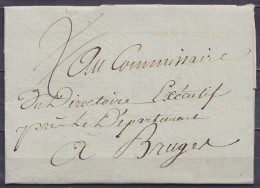 Au Commissaire
Du Directoire Exécutif
près Le Département
a Bruges